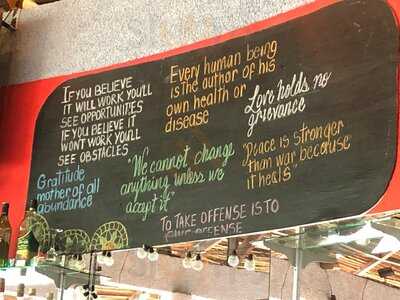 IF YOU BELIEVE
IT WILL WORK YOU'LL
SEE OPPORTUNITIES
IF YOU BELIEVE IT
WONT WORK YOU'LL
SEE OBSTACLES
Every human being
is the author of his
own health or
disease
Love holds no
grievance
"Peace is stronger
than war because
it heals"
"We cannot change
anything unless we
accept it"
Gratitude
mother of all
abundance
TO TAKE OFFENSE IS TO
OFFENSE